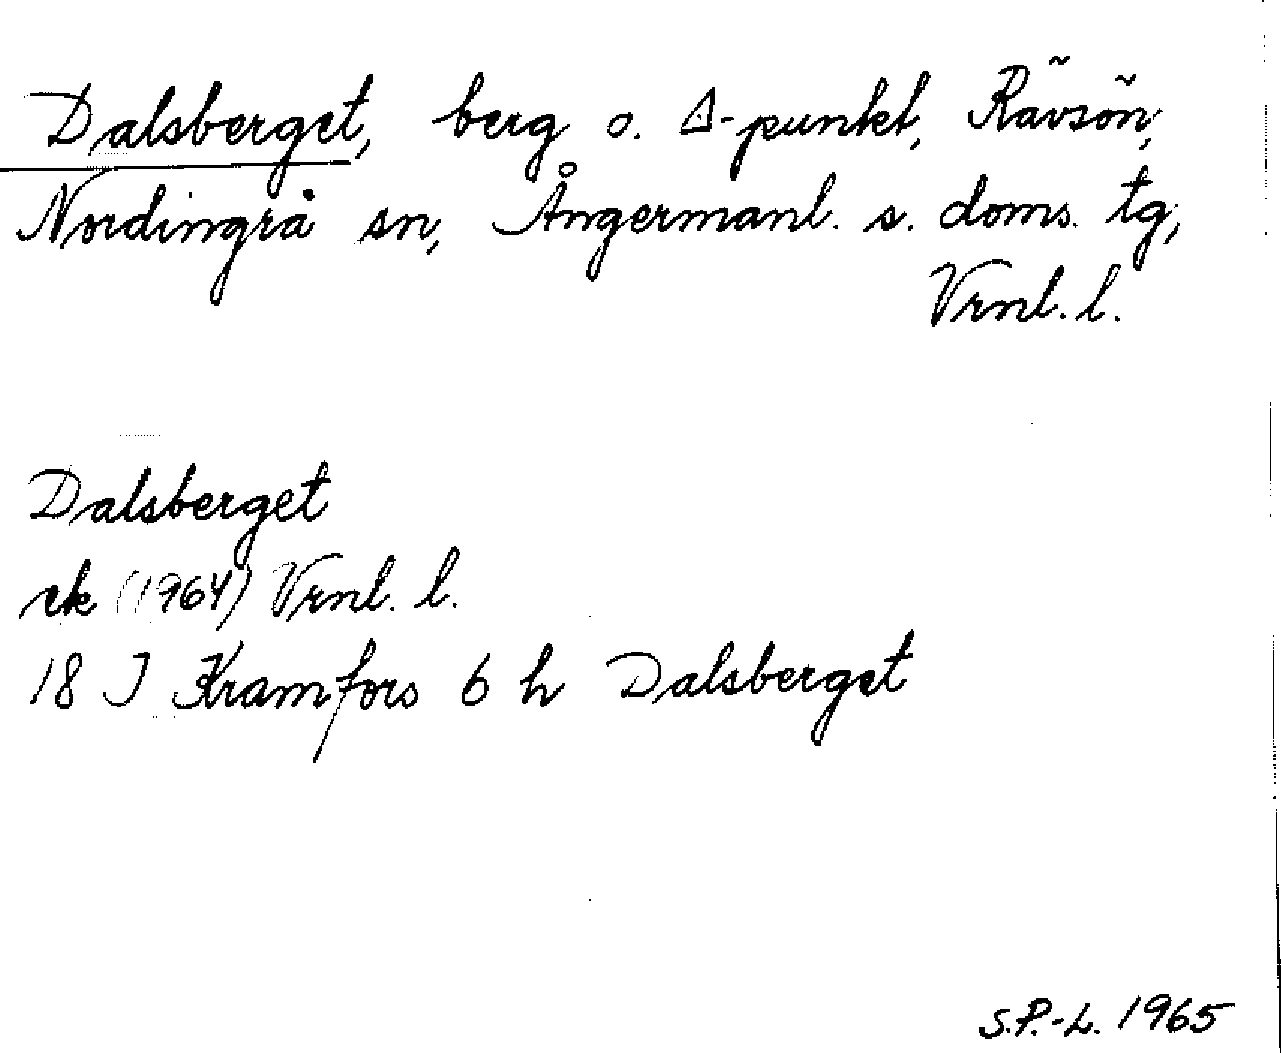 Dalsberget, berg o. Δ-punkt, Rävsön,
Nordingrå sn, Ångermanl. s. doms. tg,
Vrnl. l.
Dalsberget
ek (1964) Vrnl. l.
18 J Kramfors 6 h Dalsberget
S.P.-L. 1965